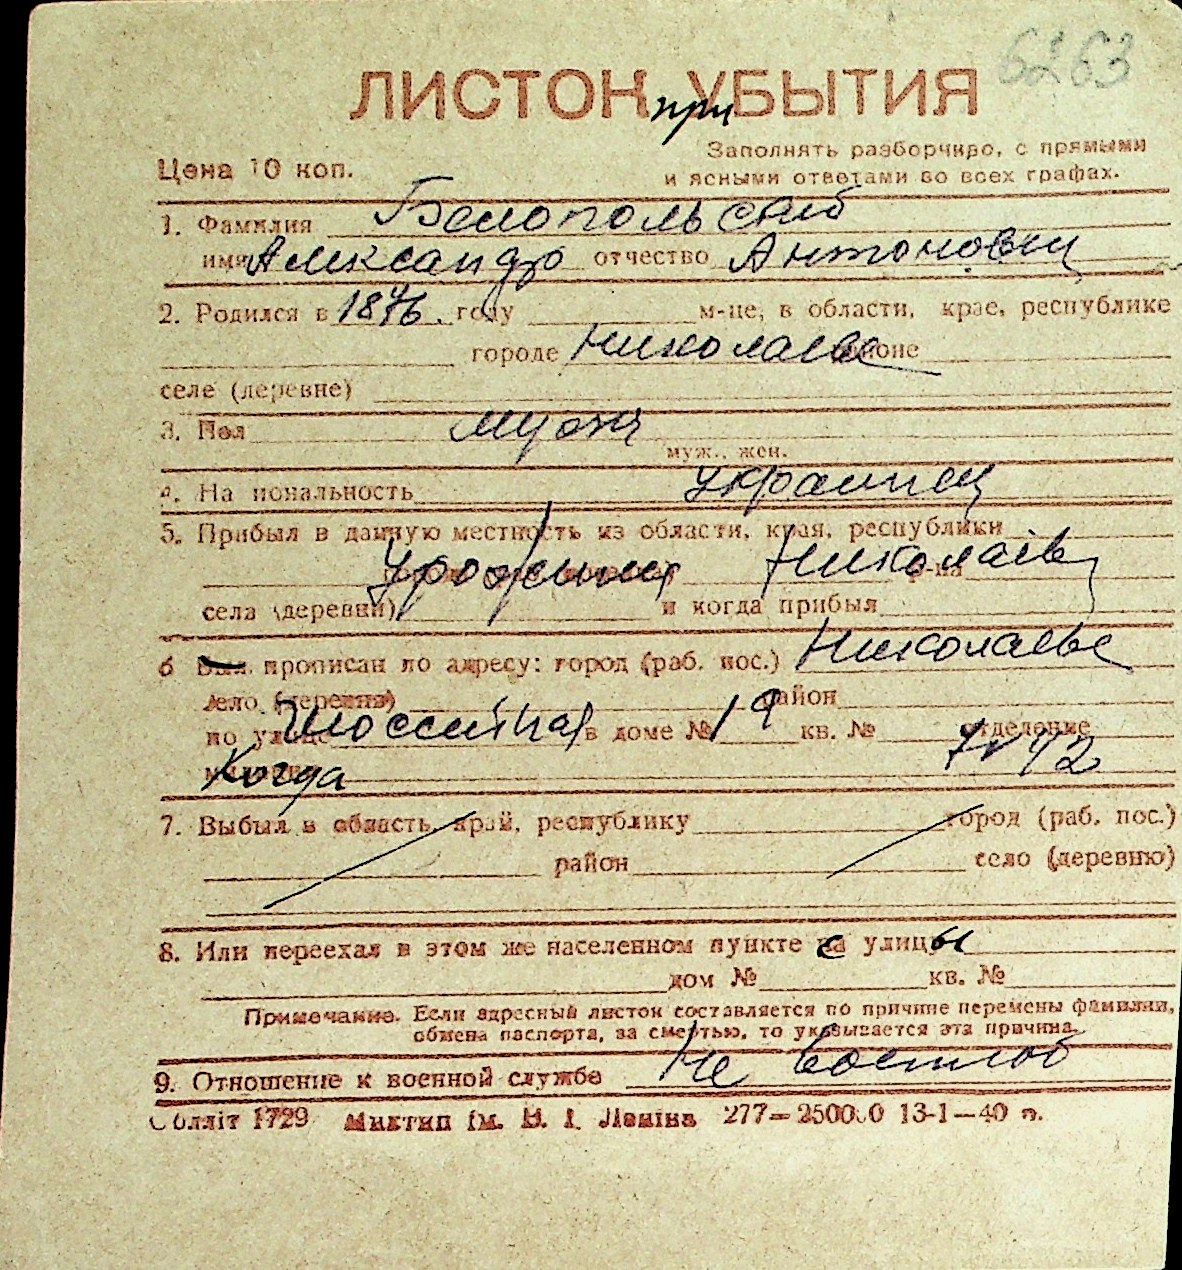 6263
ЛИСТОК при УБЫТИЯ
Цена 10 коп.
Заполнять разборчиво, с прямыми
и ясными ответами во всех графах.
1. Фамилия Белопольский
имя Александр отчество Антонович
2. Родился в 1876. году м-це, в области, крае, республике
городе Николаеве районе
селе (деревне)
3. Пол мужч
муж., жен.
4. Национальность украинец
5. Прибыл в данную местность из области, края, республики
Урожениц Николаев р-на
села (деревни) и когда прибыл
6 Был прописан по адресу: город (раб. пос.) Николаеве
село (деревня) район
по улице Шоссейная в доме № 19 кв. № отделение
Когда 42
7. Выбыл в область, край, республику город (раб. пос.)
район село (деревню)
8. Или переехал в этом же населенном пункте с улицы
дом № кв. №
Примечание. Если адресный листок составляется по причине перемены фамилии,
обмена паспорта, за смертью, то указывается эта причина.
9. Отношение к военной службе Не военнооб
Облліт 1729 Миктип ім. В. І. Леніна 277—250000 13-1—40 р.